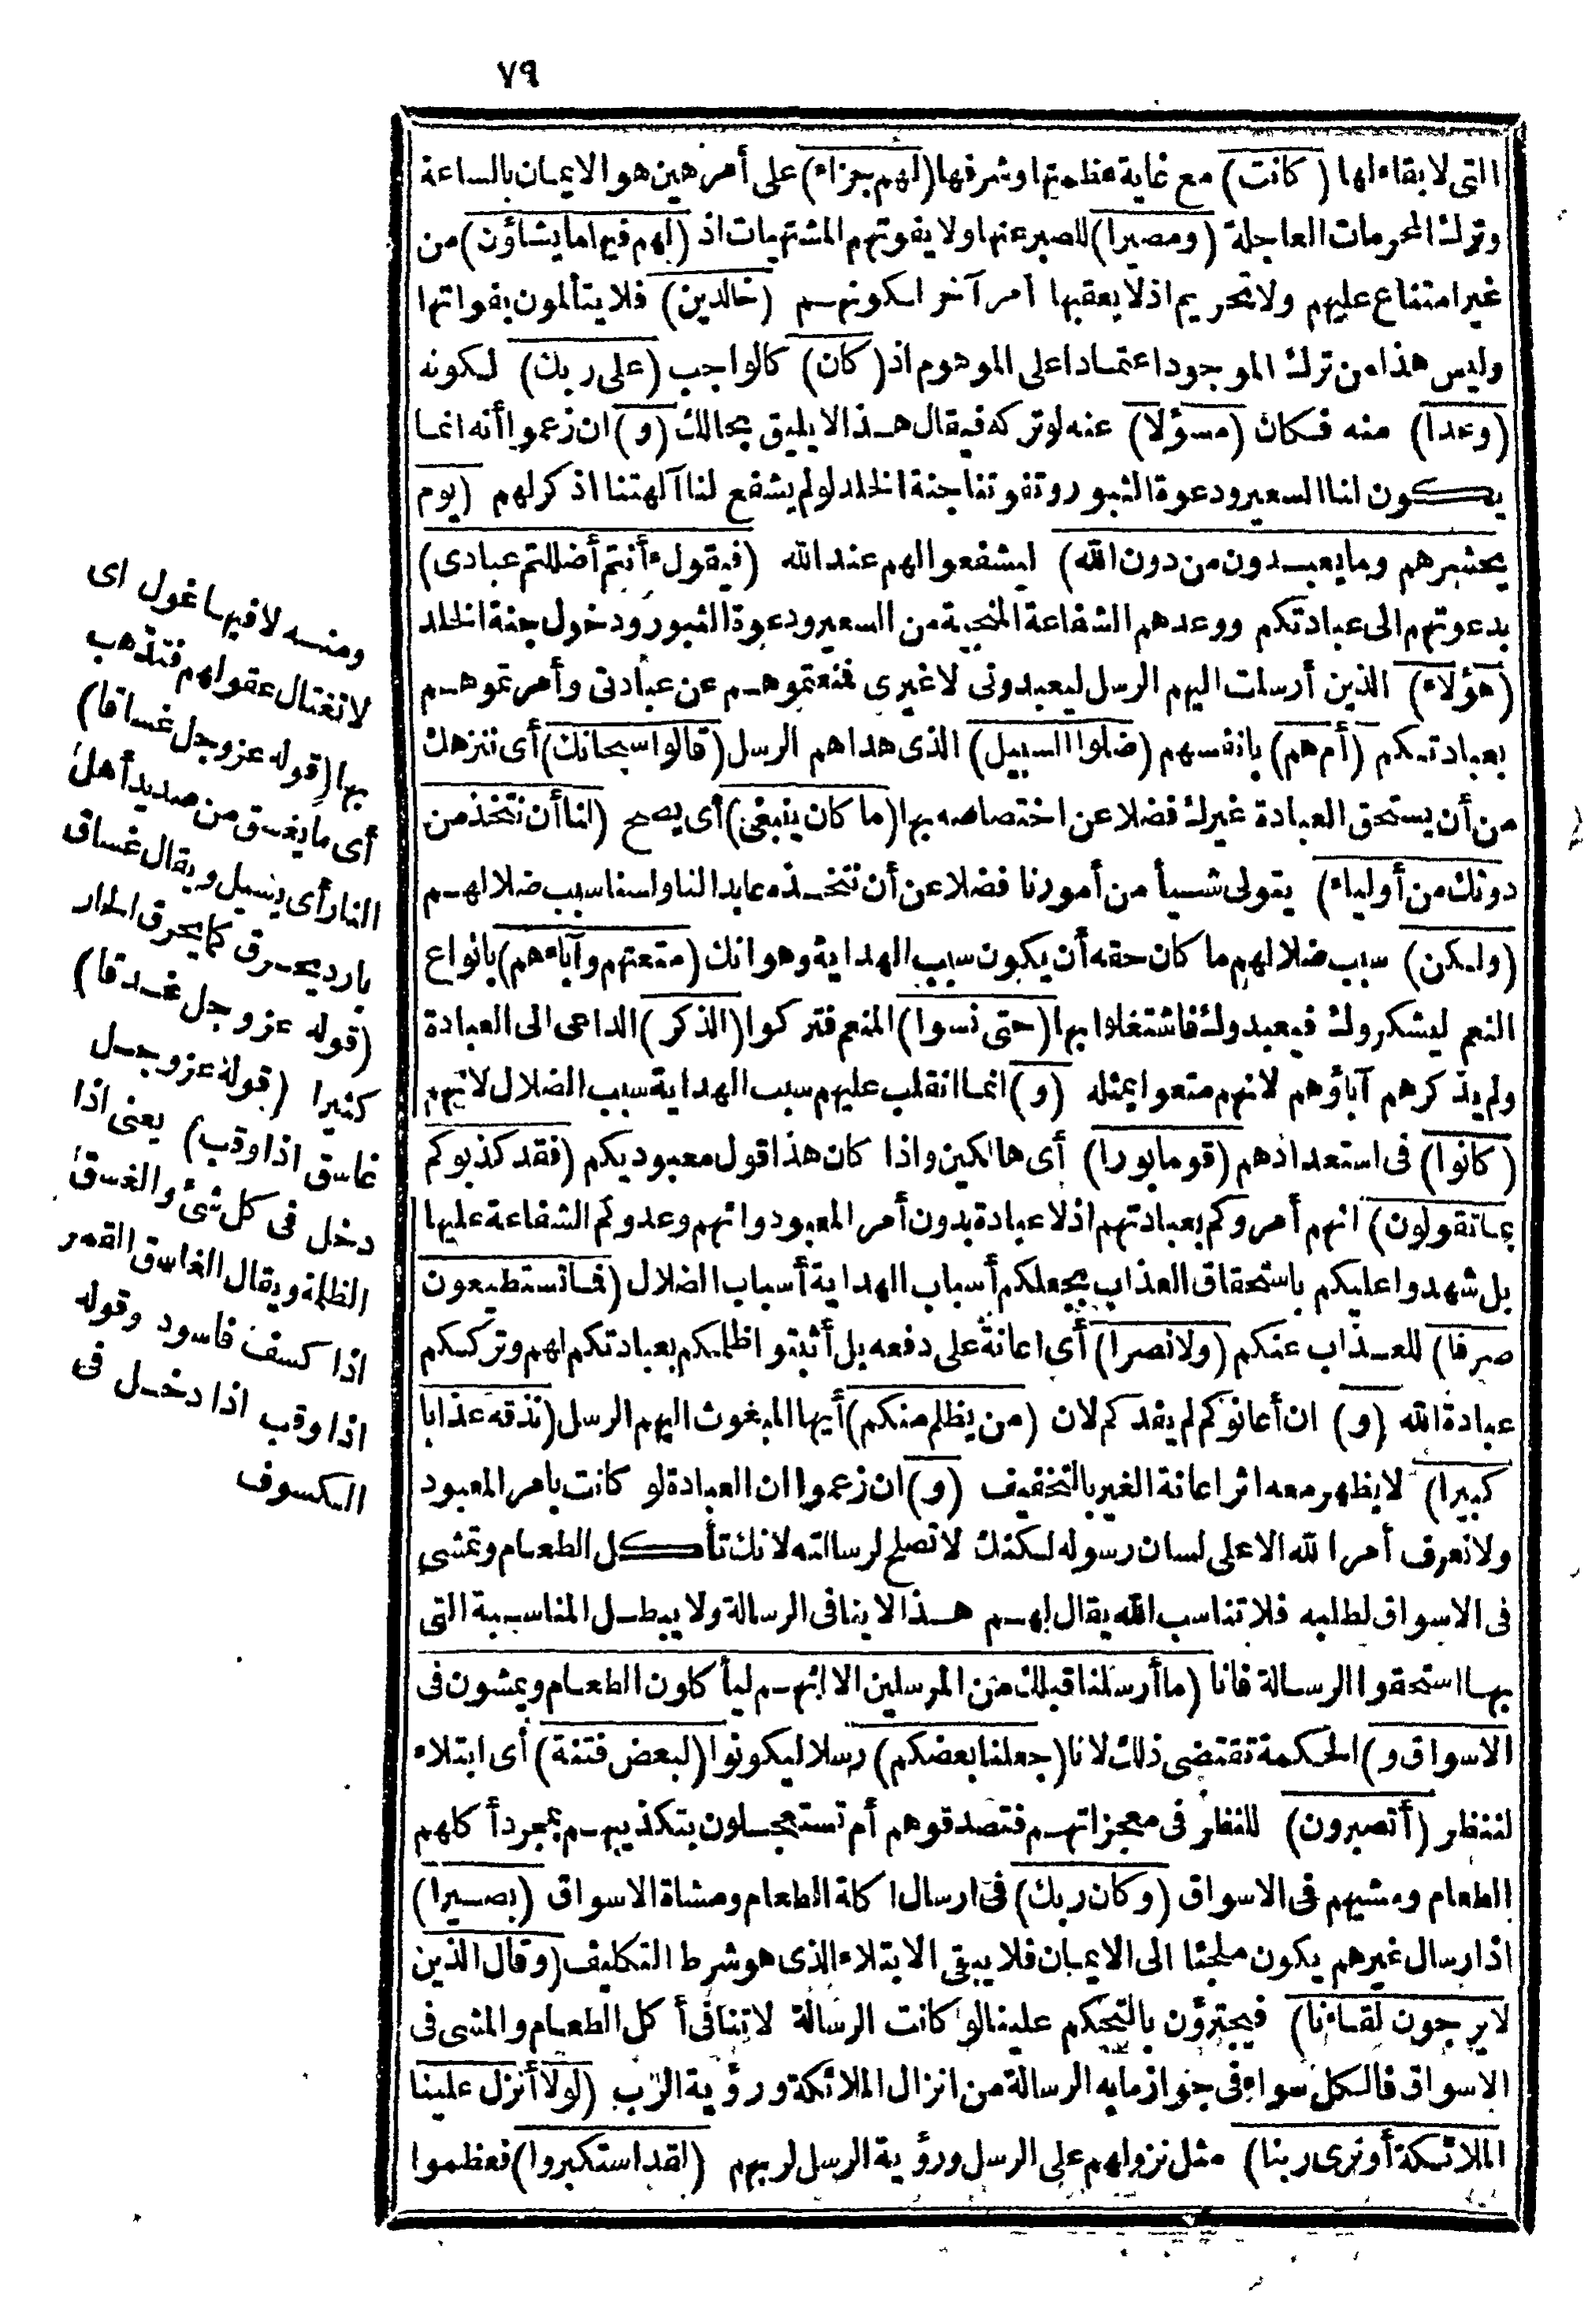 ٧٩
التى لا بقاء لها (كانت) مع غاية عظمتها وشرفها (لهم جزاء) على أمر هين هو الايمان بالساعة
وترك المحرمات العاجلة (ومصيرا) للصبر عنها ولا يفوتهم المشتهيات اذ (لهم فيها ما يشاؤن) من
غير امتناع عليهم ولا تحريم اذ لا يعقبها أمر آخر لكونهم (خالدين) فلا يتألمون بفواتها
وليس هذا من ترك الموجود اعتمادا على الموهوم اذ (كان) كالواجب (على ربك) لكونه
(وعدا) منه فكان (مسؤلا) عنه لو تركه فيقال هذا لا يليق بحالك (و) ان زعموا أنه انما
يكون لنا السعير ودعوة الثبور وتفوتنا جنة الخلد لو لم يشفع لنا آلهتنا اذ كر لهم (يوم
يحشرهم وما يعبدون من دون الله) ليشفعوا لهم عند الله (فيقول ءأنتم أضللتم عبادى)
بدعوتهم الى عبادتكم ووعدهم الشفاعة المنجية من السعير ودعوة الثبور ودخول جنة الخلد
(هؤلاء) الذين أرسلت اليهم الرسل ليعبدونى لا غيرى فمنعتموهم عن عبادتى وأمرتموهم
بعبادتكم (أم هم) بانفسهم (ضلوا السبيل) الذى هداهم الرسل (قالوا سبحانك) أى ننزهك
من أن يستحق العبادة غيرك فضلا عن اختصاصه بها (ما كان ينبغى) أى يصح (لنا أن نتخذ من
دونك من أولياء) يتولى شيأ من أمورنا فضلا عن أن نتخذه عابدا لنا ولسنا سبب ضلالهم
(ولكن) سبب ضلالهم ما كان حقه أن يكون سبب الهداية وهو انك (متعتهم وآباءهم) بانواع
النعم ليشكروك فيعبدوك فاشتغلوا بها (حتى نسوا) المنعم فتركوا (الذكر) الداعى الى العبادة
ولم يذكرهم آباؤهم لانهم متعوا بمثله (و) انما انقلب عليهم سبب الهداية سبب الضلال لانهم
(كانوا) فى استعدادهم (قوما بورا) أى هالكين واذا كان هذا قول معبوديكم (فقد كذبوكم
بما تقولون) انهم أمروكم بعبادتهم اذ لا عبادة بدون أمر المعبود وانهم وعدوكم الشفاعة عليها
بل شهدوا عليكم باستحقاق العذاب بجعلكم أسباب الهداية أسباب الضلال (فما تستطيعون
صرفا) للعذاب عنكم (ولا نصرا) أى اعانة على دفعه بل أثبتوا ظلمكم بعبادتكم لهم وترككم
عبادة الله (و) ان أعانوكم لم يفدكم لان (من يظلم منكم) أيها المبعوث اليهم الرسل (نذقه عذابا
كبيرا) لا يظهر معه اثر اعانة الغير بالتخفيف (و) ان زعموا ان العبادة لو كانت بامر المعبود
ولا نعرف أمر الله الا على لسان رسوله لكنك لا تصلح لرسالته لانك تأكل الطعام وتمشى
فى الاسواق لطلبه فلا تناسب الله يقال لهم هذا لا ينافى الرسالة ولا يبطل المناسبة التى
بها استحقوا الرسالة فانا (ما أرسلنا قبلك من المرسلين الا انهم ليأكلون الطعام ويمشون فى
الاسواق و) الحكمة تقتضى ذلك لانا (جعلنا بعضكم) رسلا ليكونوا (لبعض فتنة) أى ابتلاء
لننظر (أتصبرون) للنظر فى معجزاتهم فتصدقوهم أم تستعجلون بتكذيبهم بمجرد أكلهم
الطعام ومشيهم فى الاسواق (وكان ربك) فى ارسال اكلة الطعام ومشاة الاسواق (بصيرا)
اذ ارسال غيرهم يكون ملجئا الى الايمان فلا يبقى الابتلاء الذى هو شرط التكليف (وقال الذين
لا يرجون لقاءنا) فيجترؤن بالتحكم علينا لو كانت الرسالة لا تنافى أكل الطعام والمشى فى
الاسواق فالكل سواء فى جواز ما به الرسالة من انزال الملائكة ورؤية الرب (لولا أنزل علينا
الملائكة أو نرى ربنا) مثل نزولهم على الرسل ورؤية الرسل لربهم (لقد استكبروا) فعظموا
ومنه لا فيها غول اى
لا تغتال عقولهم فتذهب
بها (قوله عز وجل غساقا)
أى ما يغسق من صديد أهل
النار أى يسيل ويقال غساق
بارد يحرق كما يحرق الحار
(قوله عز وجل غدقا)
كثيرا (قوله عز وجل
غاسق اذا وقب) يعنى اذا
دخل فى كل شئ والغسق
الظلمة ويقال الغاسق القمر
اذا كسف فاسود وقوله
اذا وقب اذا دخل فى
الكسوف